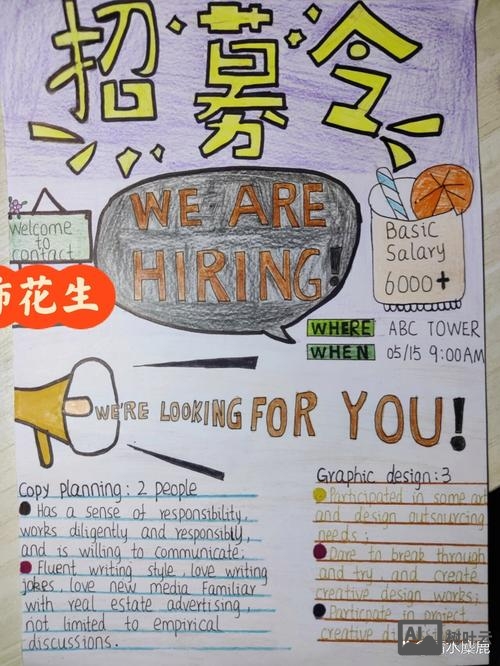 招募令
Welcome
to
contact
市花生
WE ARE
HIRING!
Basic
Salary
6000+
WHERE ABC TOWER
WHEN 05/15 9:00AM
WE'RE LOOKING FOR YOU!
Copy planning: 2 people
Has a sense of responsibility,
works diligently and responsibly,
and is willing to communicate;
Fluent writing style, love writing
jokes, love new media Familiar
with real estate advertising,
not limited to empirical
discussions.
Graphic design:3
Participated in some art
and design outsourcing
needs;
Dare to break through
and try and create
creative design works;
Participate in project
creative
AI
树叶云
水麋鹿